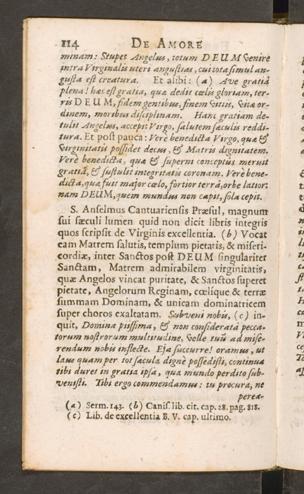 114 DE AMORE
minam: Stupet Angelus, totum DEUM venire
intra Virginalis uteri angustias, cui tota simul an-
gusta est creatura. Et alibi: (a) Ave gratiâ
plena! hæc est gratia, quæ dedit cœlis gloriam, ter-
ris DEUM, fidem gentibus, finem vitiis, vitæ or-
dinem, moribus disciplinam. Hanc gratiam de-
tulit Angelus, accepit Virgo, salutem sæculis reddi-
tura. Et post pauca: Verè benedicta Virgo, quæ &
Virginitatis possidet decus, & Matris dignitatem.
Verè benedicta, quæ & superni conceptus meruit
gratiā, & sustulit integritatis coronam. Verè bene-
dicta, quæ fuit major cœlo, fortior terrâ, orbe latior:
nam DEUM, quem mundus non capit, sola cepit.
S. Anselmus Cantuariensis Præsul, magnum
sui sæculi lumen quid non dicit libris integris
quos scripsit de Virginis excellentia. (b) Vocat
eam Matrem salutis, templum pietatis, & miseri-
cordiæ, inter Sanctos post DEUM singulariter
Sanctam, Matrem admirabilem virginitatis,
quæ Angelos vincat puritate, & Sanctos superet
pietate, Angelorum Reginam, cœlique & terræ
summam Dominam, & unicam dominatricem
super choros exaltatam. Subveni nobis, (c) in-
quit, Domina piissima, & non consideratâ pecca-
torum nostrorum multitudine, Velle tuũ ad mise-
rendum nobis inflecte. Eja succurre! oramus, ut
laus quam per tot sæcula dignè possedisti, continua
tibi duret in gratia ipsa, qua mundo perdito sub-
venisti. Tibi ergo commendamus: tu procura, ne
perea-
(a) Serm. 143. (b) Canis. lib. cit. cap. 28. pag. 818.
(c) Lib. de excellentia B. V. cap. ultimo.